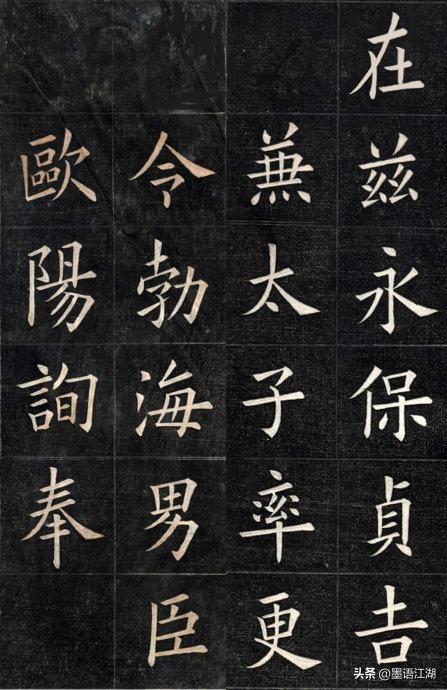 在兹永保貞吉
兼太子率更
令勃海男臣
歐陽詢奉
头条 @墨语江湖